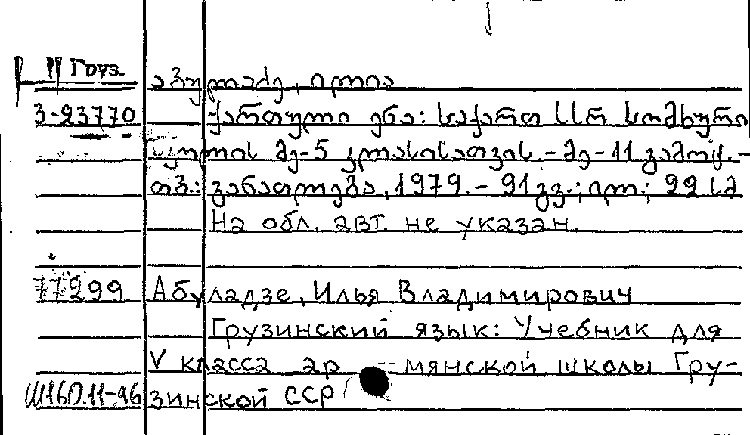 Груз. აბულაძე, ილია
3-23770 ქართული ენა: საქართ. სსრ სომხური
სკოლის მე-5 კლასისათვის. - მე-11 გამოც. -
თბ.: განათლება, 1979. - 91 გვ.; ილ.; 22 სმ
На обл. авт. не указан.
77299 Абуладзе, Илья Владимирович
Грузинский язык: Учебник для
V класса ар - мянской школы Гру-
Ш160.11-96 зинской ССР